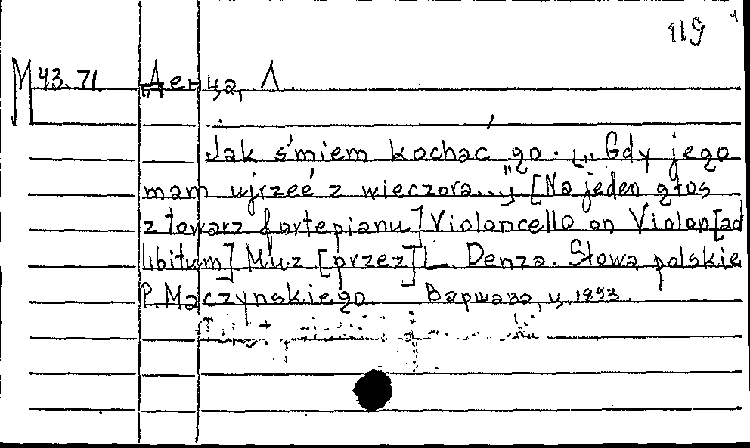 119
М 43.71 Денца, Л.
Jak śmiem kochać go. „Gdy jego
mam ujrzeć z wieczora..." [Na jeden głos
z towarz fortepianu] Violoncello on Violon[ad
libitum] Muz [przez] L. Denza. Słowa polskie
P. Maczynskiego. Варшава, ц. 1893.